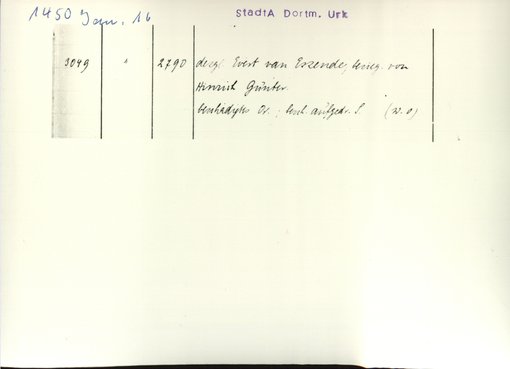 1450 Jan. 16 StadtA Dortm. Urk
3049 " 2790 desgl Evert van Eszende, besieg. von
Hinrich Günter
beschädigtes Or.; besch. aufgedr. S (w. o)